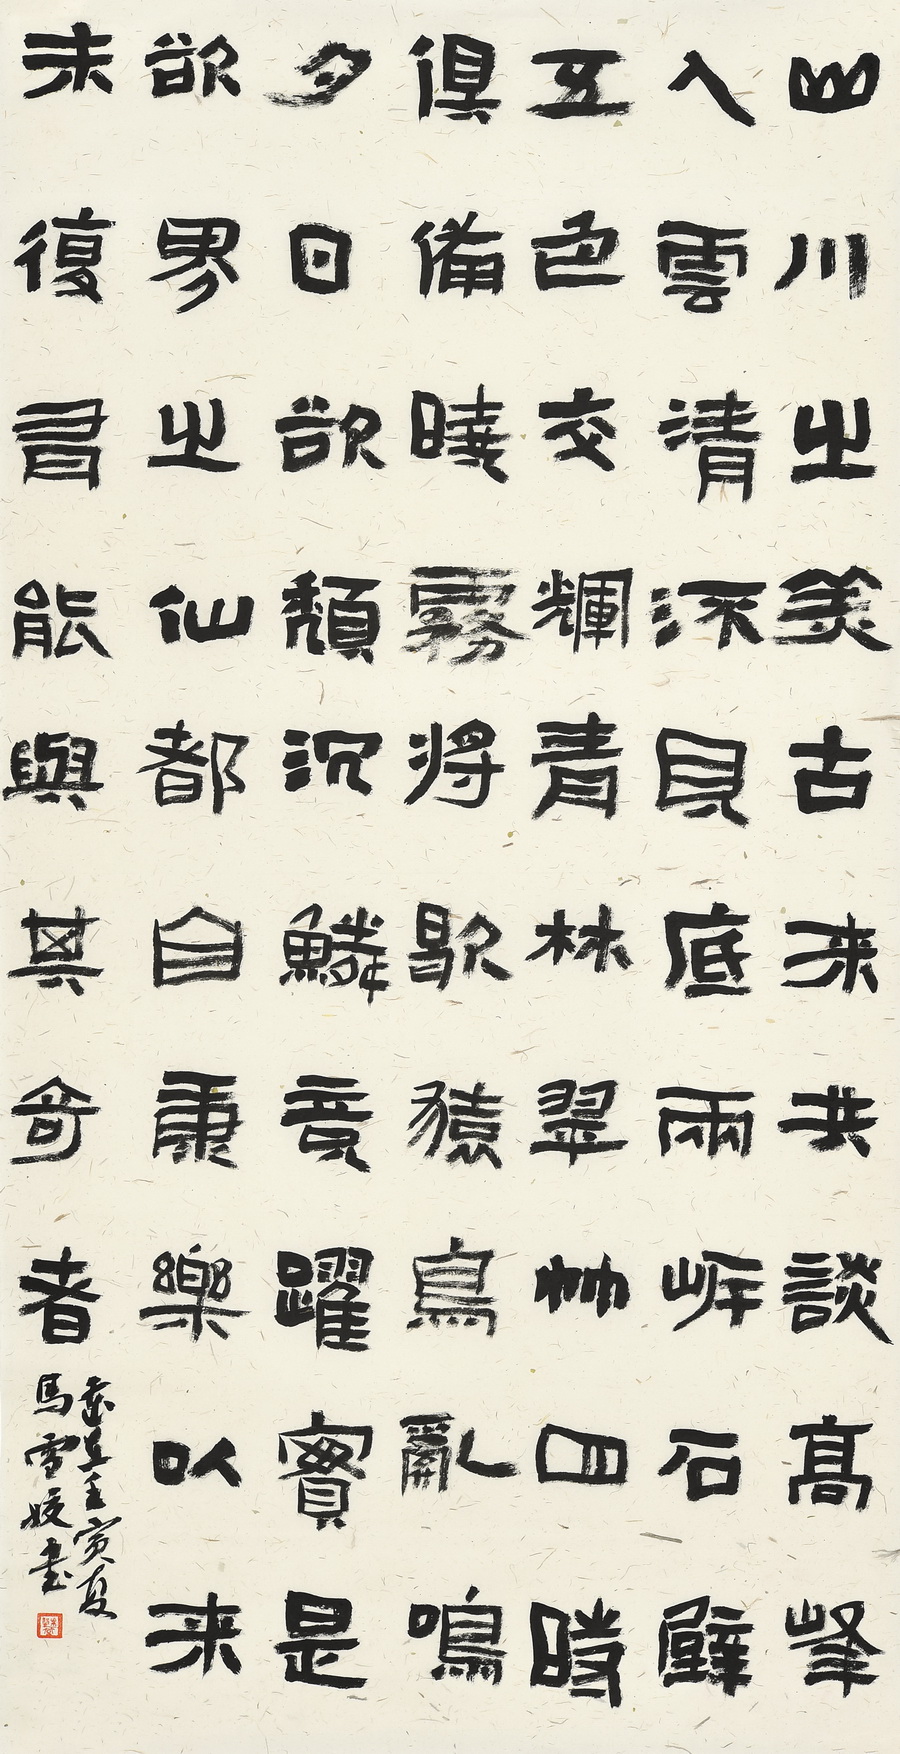 山川之美古来共談高峰
入雲清流見底兩岸石壁
五色交輝青林翠竹四時
俱備曉霧將歇猿鳥亂鳴
夕日欲頹沉鱗競躍實是
欲界之仙都自康樂以来
未復有能與其奇者
歲在壬寅夏
馬雪姣書